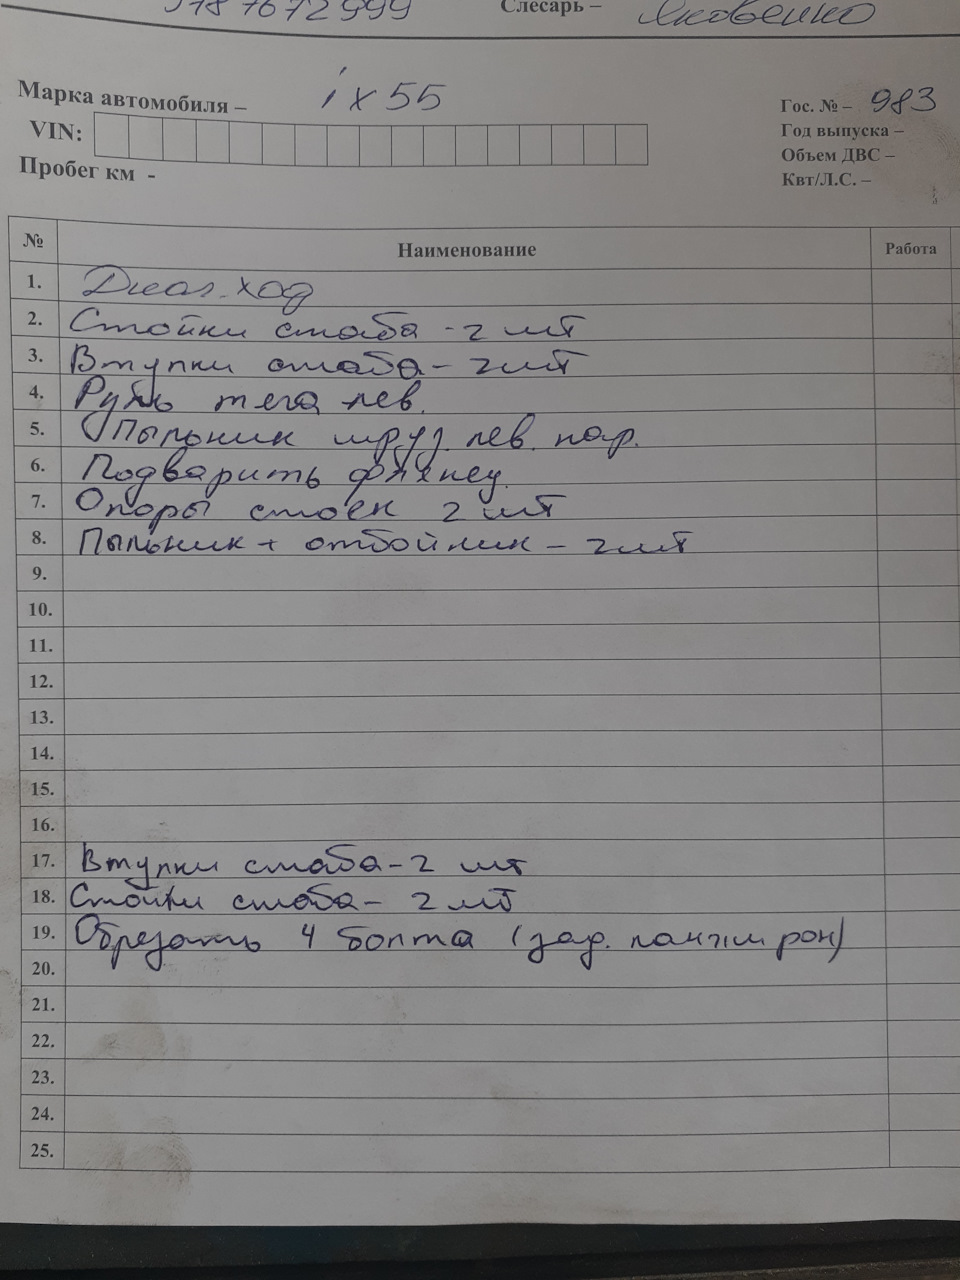 Слесарь – Яковенко
Марка автомобиля – ix55
Гос. № – 983
VIN:
Год выпуска –
Объем ДВС –
Пробег км -
Квт/Л.С. –
№ Наименование Работа
1. Диаг. ход
2. Стойки стаба - 2 шт
3. Втулки стаба - 2 шт
4. Руль тяга лев.
5. Пыльник шруз лев. нар.
6. Подварить фланец
7. Опоры стоек 2 шт
8. Пыльник + отбойник - 2 шт
9.
10.
11.
12.
13.
14.
15.
16.
17. Втулки стаба - 2 шт
18. Стойки стаба - 2 шт
19. Обрезать 4 болта (зад. лонжирон)
20.
21.
22.
23.
24.
25.